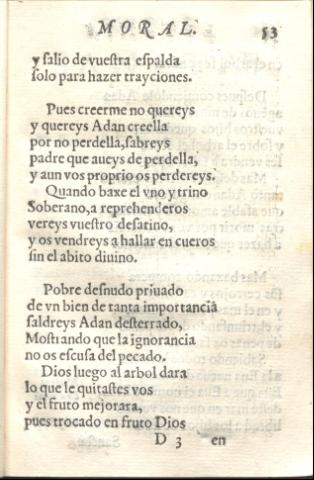 MORAL. 53
y salio de vuestra espalda
solo para hazer trayciones.
Pues creerme no quereys
y quereys Adan creella
por no perdella, sabreys
padre que aueys de perdella,
y aun vos proprio os perdereys.
Quando baxe el vno y trino
Soberano, a reprehenderos
vereys vuestro desatino,
y os vendreys a hallar en cueros
sin el abito diuino.
Pobre desnudo priuado
de vn bien de tanta importancia
saldreys Adan desterrado,
Mostrando que la ignorancia
no os escusa del pecado.
Dios luego al arbol dara
lo que le quitastes vos
y el fruto mejorara,
pues trocado en fruto Dios
D 3 en